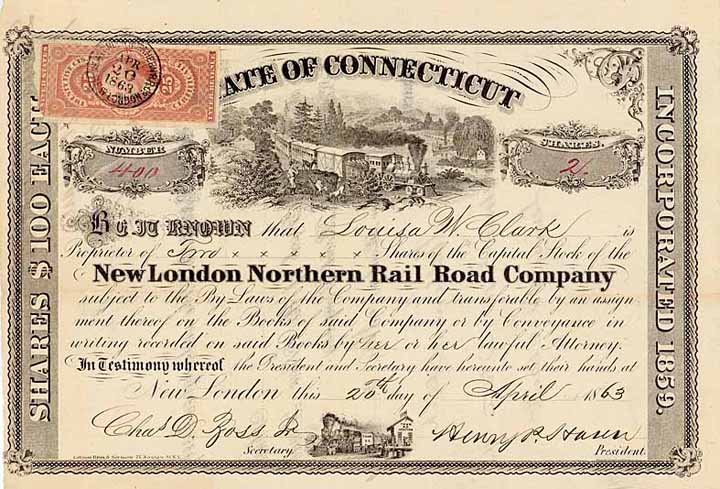 APR
20
1863
25
ATE OF CONNECTICUT
NUMBER
400
SHARES.
2
SHARES $100 EACH
INCORPORATED 1859.
BE IT KNOWN that Louisa W. Clark is
Proprietor of Two x x x x x Shares of the Capital Stock of the
New London Northern Rail Road Company
subject to the By Laws of the Company and transferable by an assign
ment thereof on the Books of said Company or by Conveyance in
writing recorded on said Books by her or her lawful Attorney.
In Testimony whereof the President and Secretary have hereunto set their hands at
New London this 20th day of April 1863
Chas D. Boss Jr
Secretary.
Henry P. Haven
President.